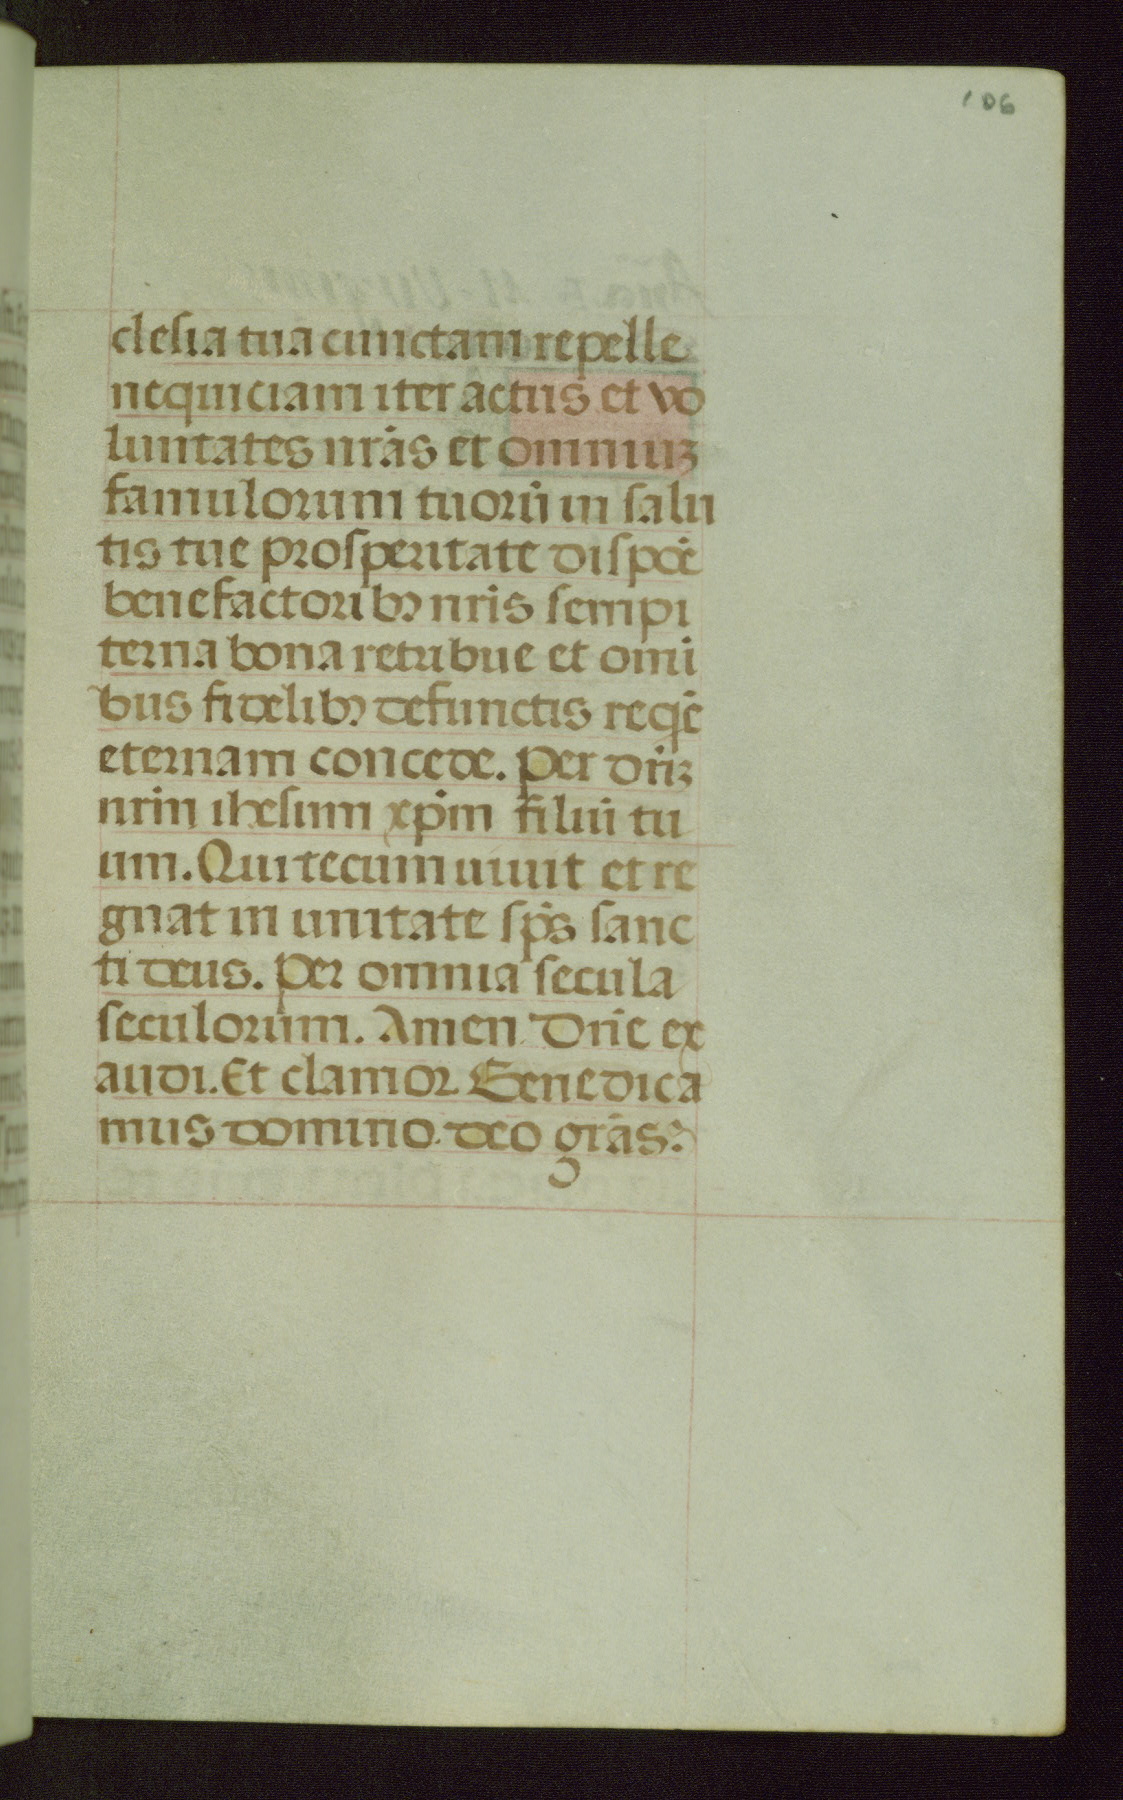 106
clesia tua cunctam repelle
nequiciam iter actus et vo
luntates nr̃as et omniuꝫ
famulorum tuorũ in salu
tis tue prosperitate dispoẽ
benefactoribꝫ nr̃is sempi
terna bona retribue et omi
bus fidelibꝫ defunctis reqẽ
eternam concede. Per dñꝫ
nr̃m ihesum xp̃m filiũ tu
um. Qui tecum uiuit et re
gnat in unitate sp̃s sanc
ti deus. Per omnia secula
seculorum. Amen. Dñe ex
audi. Et clamor. Benedica
mus domino. deo gr̃as.